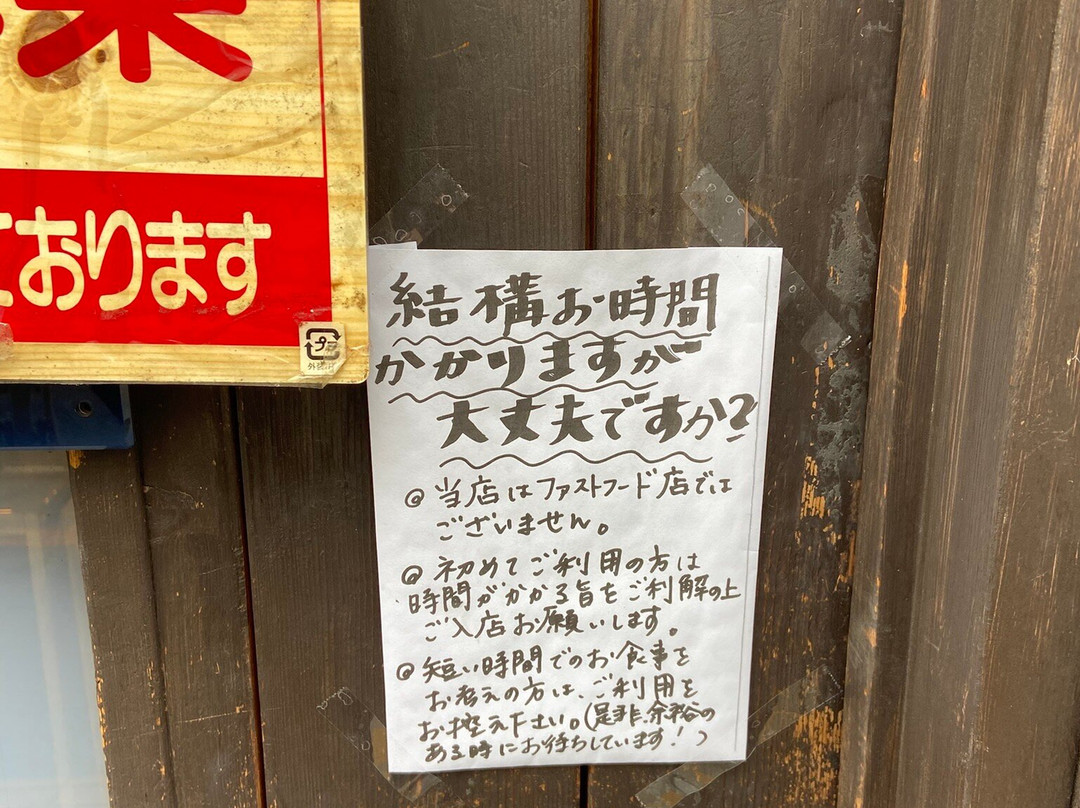 業
ております
プラ
結構お時間
かかりますが
大丈夫ですか?
◎当店はファストフード店では
ございません。
◎初めてご利用の方は
時間がかかる旨をご利解の上
ご入店お願いします。
◎短い時間でのお食事を
お考えの方は、ご利用を
お控え下さい。(是非、余裕の
ある時にお待ちしています!)